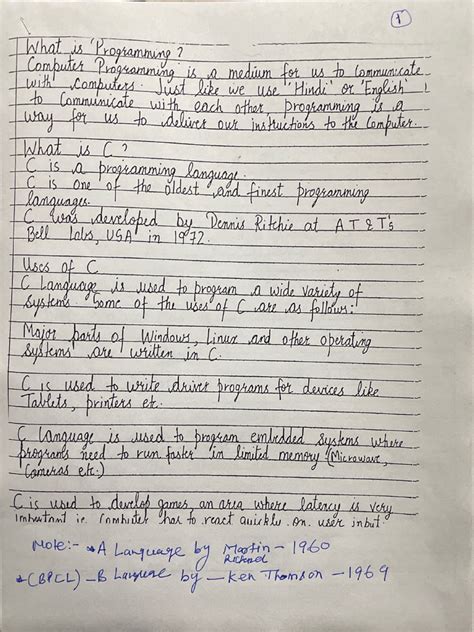 1
What is 'Programming?
Computer Programming is a medium for us to Communicate
with computers. Just like we use 'Hindi' or 'English'
to Communicate with each other programming is a
way for us to deliver our instructions to the Computer.
What is C?
C is a programming language.
C is one of the oldest and finest programming
languages.
C was developed by Dennis Ritchie at AT&T's
Bell Labs, USA in 1972.
Uses of C
C Language is used to program a wide variety of
systems. Some of the uses of C are as follows:
Major parts of Windows, Linux and other operating
systems are written in C.
C is used to write driver programs for devices like
Tablets, printers etc.
C language is used to program embedded systems where
programs need to run faster in limited memory (Microwave,
Cameras etc.)
C is used to develop games, an area where latency is very
important ie. Computer has to react quickly on user input.
Note:- *A Language by Martin - 1960
Richard
*(BPCL) - B Language by - Ken Thomson - 1969